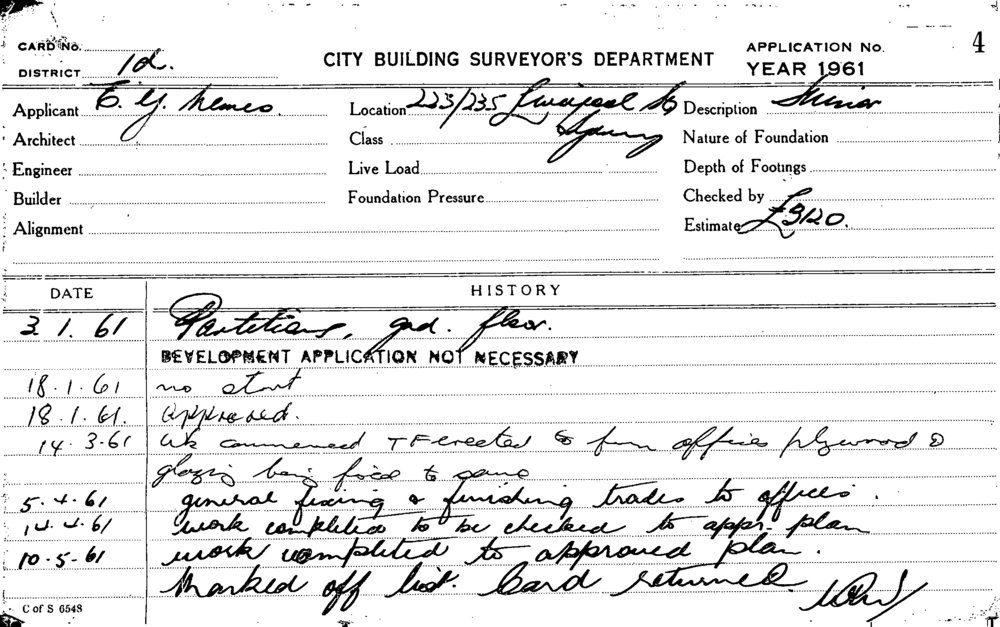 CARD No.
DISTRICT 1d.
CITY BUILDING SURVEYOR'S DEPARTMENT
APPLICATION No. 4
YEAR 1961
Applicant E. G. Nemes.
Location 223/235 Liverpool St
Description Minor
Architect
Class Sydney
Nature of Foundation
Engineer
Live Load
Depth of Footings
Builder
Foundation Pressure
Checked by
Alignment
Estimate £3120.
DATE HISTORY
3. 1. 61 Partitions, gnd. floor.
DEVELOPMENT APPLICATION NOT NECESSARY
18. 1. 61 no start
18. 1. 61. Approved.
14. 3. 61 Wk commenced TF erected to form offices plywood &
glazing being fixed to same
5. 4. 61 general fixing & finishing trades to offices.
14. 4. 61 work completed to be checked to appr. plan
10. 5. 61 work completed to approved plan.
Marked off list. Card returned.
C of S 6548